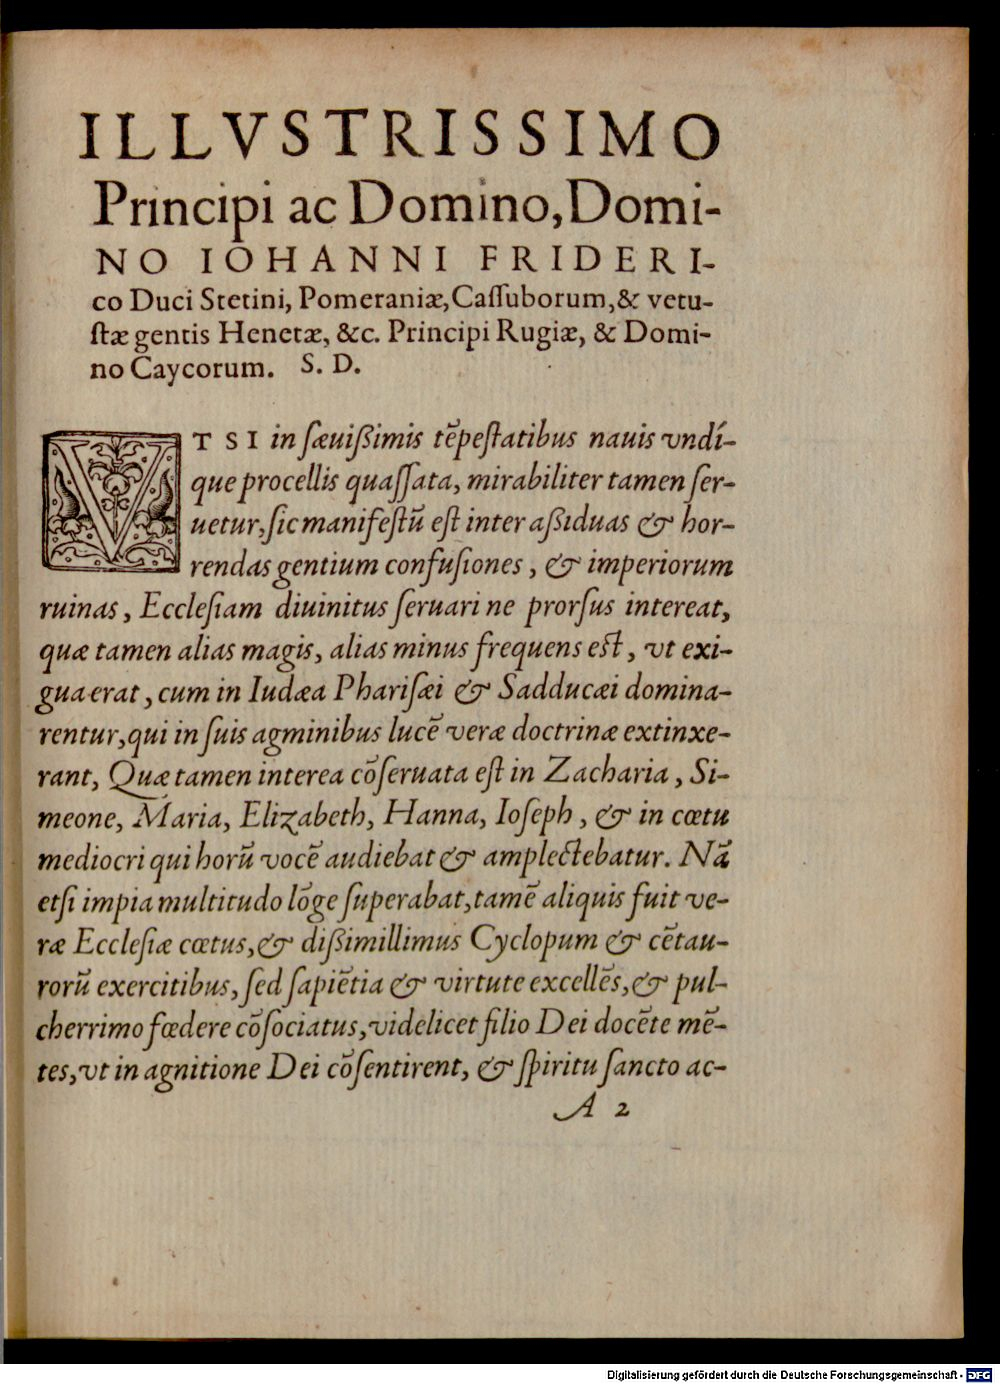 ILLVSTRISSIMO
Principi ac Domino, Domi-
NO IOHANNI FRIDERI-
co Duci Stetini, Pomeraniæ, Caſſuborum, & vetu-
ſtæ gentis Henetæ, &c. Principi Rugiæ, & Domi-
no Caycorum. S. D.
VT SI in ſæuißimis tēpeſtatibus nauis vndi-
que procellis quaſſata, mirabiliter tamen ſer-
uetur, ſic manifeſtū eſt inter aßiduas & hor-
rendas gentium confuſiones, & imperiorum
ruinas, Eccleſiam diuinitus ſeruari ne prorſus intereat,
quæ tamen alias magis, alias minus frequens eſt, vt exi-
gua erat, cum in Iudæa Phariſæi & Sadducæi domina-
rentur, qui in ſuis agminibus lucē veræ doctrinæ extinxe-
rant, Quæ tamen interea cōſeruata eſt in Zacharia, Si-
meone, Maria, Elizabeth, Hanna, Ioſeph, & in cœtu
mediocri qui horū vocē audiebat & amplectebatur. Nā
etſi impia multitudo lōge ſuperabat, tamē aliquis fuit ve-
ræ Eccleſiæ cœtus, & dißimillimus Cyclopum & cētau-
rorū exercitibus, ſed ſapiētia & virtute excellēs, & pul-
cherrimo fœdere cōſociatus, videlicet filio Dei docēte mē-
tes, vt in agnitione Dei cōſentirent, & ſpiritu ſancto ac-
A 2
Digitalisierung gefördert durch die Deutsche Forschungsgemeinschaft - DFG